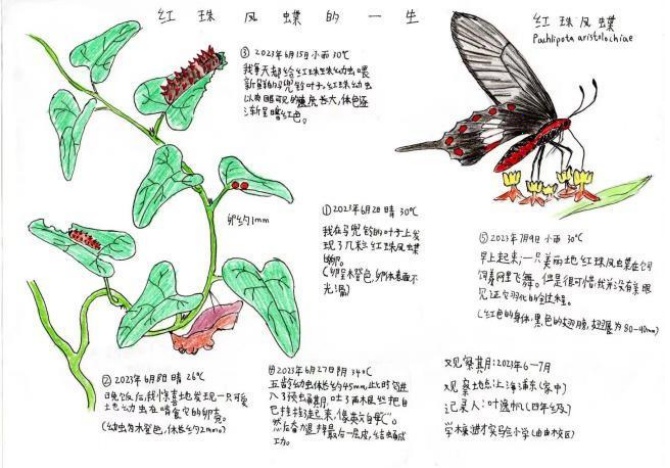 红珠凤蝶的一生
红珠凤蝶
Pachliopta aristolochiae
③ 2023年6月15日 小雨 30℃
我每天都给红珠蝶幼虫喂
新鲜的马兜铃叶子,红珠幼虫
以肉眼可见的速度长大,体色逐
渐呈暗红色。
卵约1mm
① 2023年6月2日 晴 30℃
我在马兜铃的叶子上发
现了几粒红珠凤蝶
卵。
(卵呈橙色,卵体表面不
光滑)
⑤ 2023年7月9日 小雨 30℃
早上起来,一只美丽地红珠凤蝶在
饲养网里飞舞。但是很可惜我并没有亲眼
见证它羽化的全过程。
(红色的身体,黑色的翅膀,翅展为80-90mm)
② 2023年6月8日 晴 26℃
晚饭后,我惊喜地发现一只可爱
幼虫在啃食它的卵壳。
(幼虫为橙色,体长约2mm。)
④ 2023年6月27日 阴 34℃
五龄幼虫体长约45mm,此时它进
入了预蛹期,吐了两根丝把自
己挂起来,像英文字母“C”。
然后奋力蜕掉最后一层皮,结蛹成
功。
观察日期:2023年6-7月
观察地点:上海浦东(家中)
记录人:叶逸帆(四年级)
学校:进才实验小学(由由校区)